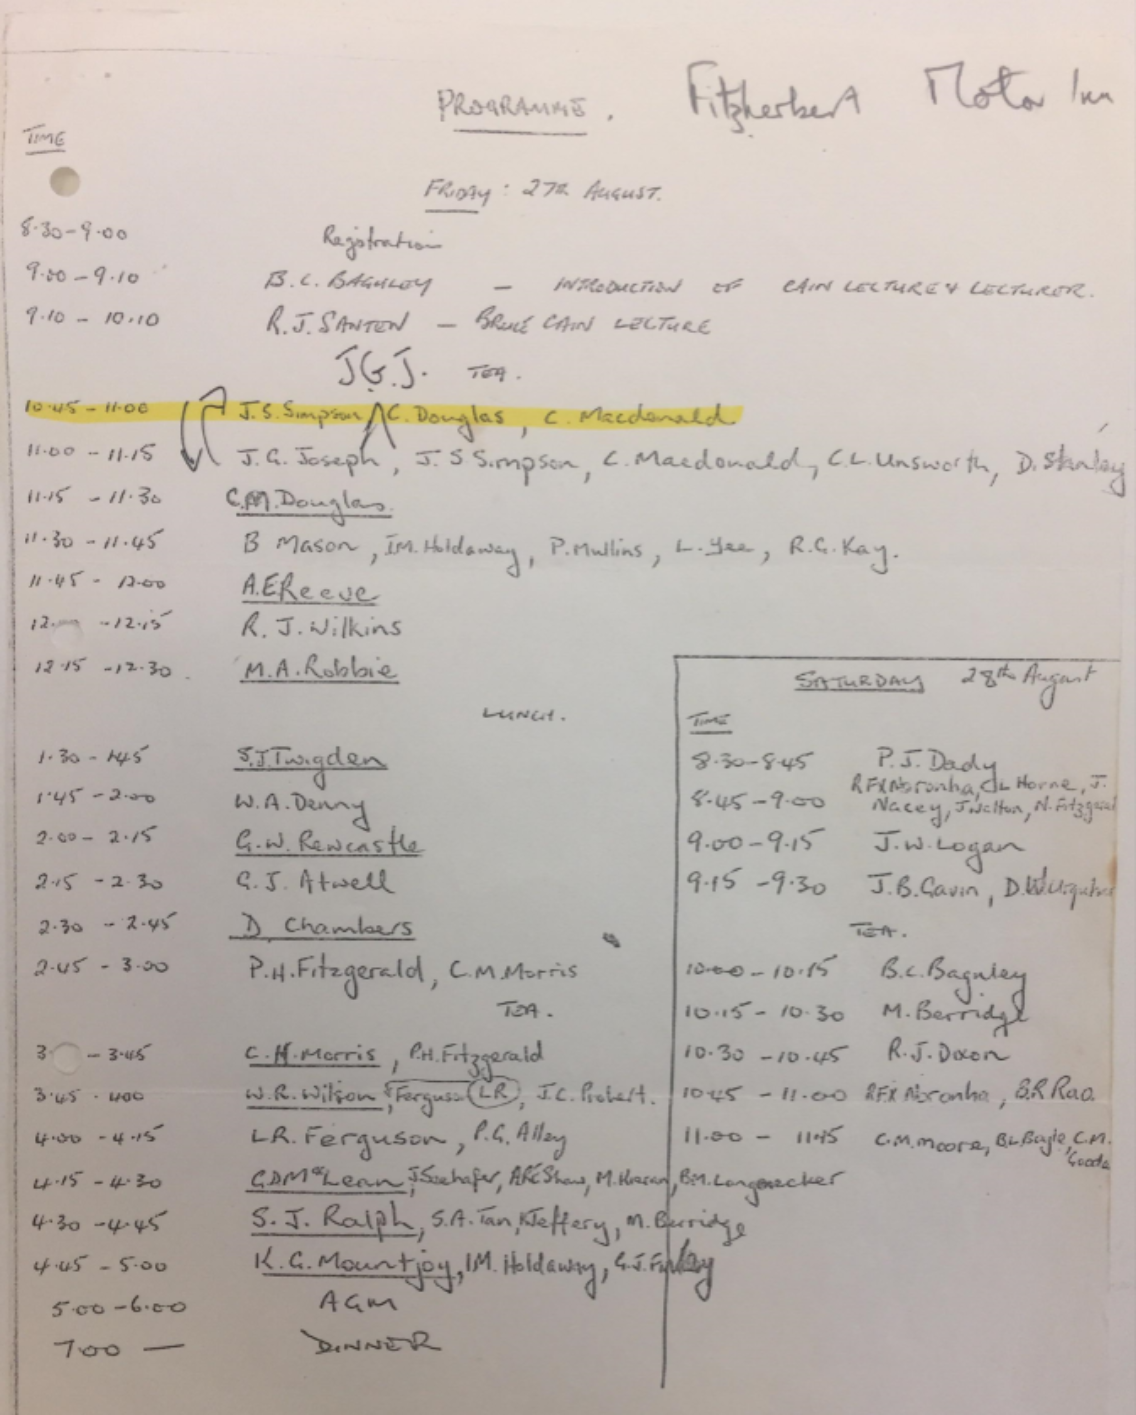 PROGRAMME. Fitzherbert Motor Inn
TIME
FRIDAY: 27TH AUGUST.
8.30-9.00 Registration
9.00-9.10 B.C. BAGULEY - INTRODUCTION OF CAIN LECTURE & LECTURER.
9.10-10.10 R.J. SANTEN - BRUCE CAIN LECTURE
J.G.J. TEA.
10.45-11.00 J.S. Simpson C. Douglas, C. Macdonald
11.00-11.15 J.G. Joseph, J.S Simpson, C. Macdonald, C.L. Unsworth, D. Stanley
11.15-11.30 C.M. Douglas.
11.30-11.45 B Mason, IM. Holdaway, P. Mullins, L. Yee, R.G. Kay.
11.45-12.00 A.E Reeve
12. -12.15 R. J. Wilkins
12.15-12.30. M.A. Robbie
LUNCH.
1.30-1.45 S.J. Twigden
1.45-2.00 W.A. Denny
2.00-2.15 G.W. Rewcastle
2.15-2.30 G.J. Atwell
2.30-2.45 D. Chambers
2.45-3.00 P.H. Fitzgerald, C.M. Morris
TEA.
3 -3.45 C.M. Morris, P.H. Fitzgerald
3.45-4.00 W.R. Wilson, Ferguson LR, J.C. Probert.
4.00-4.15 L.R. Ferguson, P.G. Alley
4.15-4.30 G.D McLean, J Seehafer, M. Horan, B.M. Longenecker
4.30-4.45 S. J. Ralph, S.A. Tan, K Jeffery, M. Berridge
4.45-5.00 K.G. Mountjoy, I.M. Holdaway, G.J. Finlay
5.00-6.00 AGM
7.00 - DINNER
SATURDAY 28th August
TIME
8.30-8.45 P.J. Dady
8.45-9.00 RFX Noronha, CL Horne, J.
Nacey, J Walton, N. Fitzgerald
9.00-9.15 J.W. Logan
9.15-9.30 J.B. Gavin, D.W Urquhart
TEA.
10.00-10.15 B.C. Baguley
10.15-10.30 M. Berridge
10.30-10.45 R.J. Dixon
10.45-11.00 RFX Noronha, B.R Rao.
11.00-11.15 C.M. Moore, C.M.
Goode